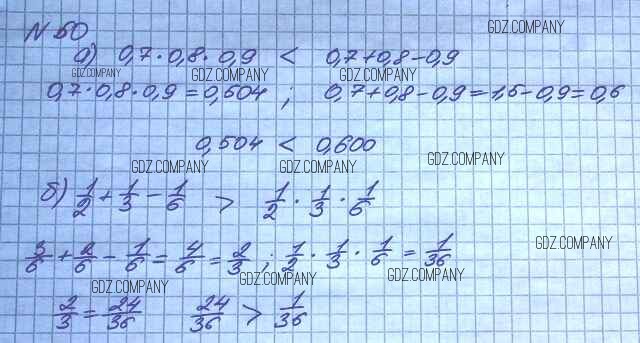 № 50
GDZ.COMPANY
а) 0,7 · 0,8 · 0,9 < 0,7 + 0,8 - 0,9
GDZ.COMPANY GDZ.COMPANY GDZ.COMPANY
0,7 · 0,8 · 0,9 = 0,504 ; 0,7 + 0,8 - 0,9 = 1,5 - 0,9 = 0,6
0,504 < 0,600
GDZ.COMPANY GDZ.COMPANY GDZ.COMPANY
б) 1/2 + 1/3 - 1/6 > 1/2 · 1/3 · 1/6
GDZ.COMPANY
3/6 + 2/6 - 1/6 = 4/6 = 2/3 ; 1/2 · 1/3 · 1/6 = 1/36
GDZ.COMPANY GDZ.COMPANY GDZ.COMPANY
2/3 = 24/36 24/36 > 1/36